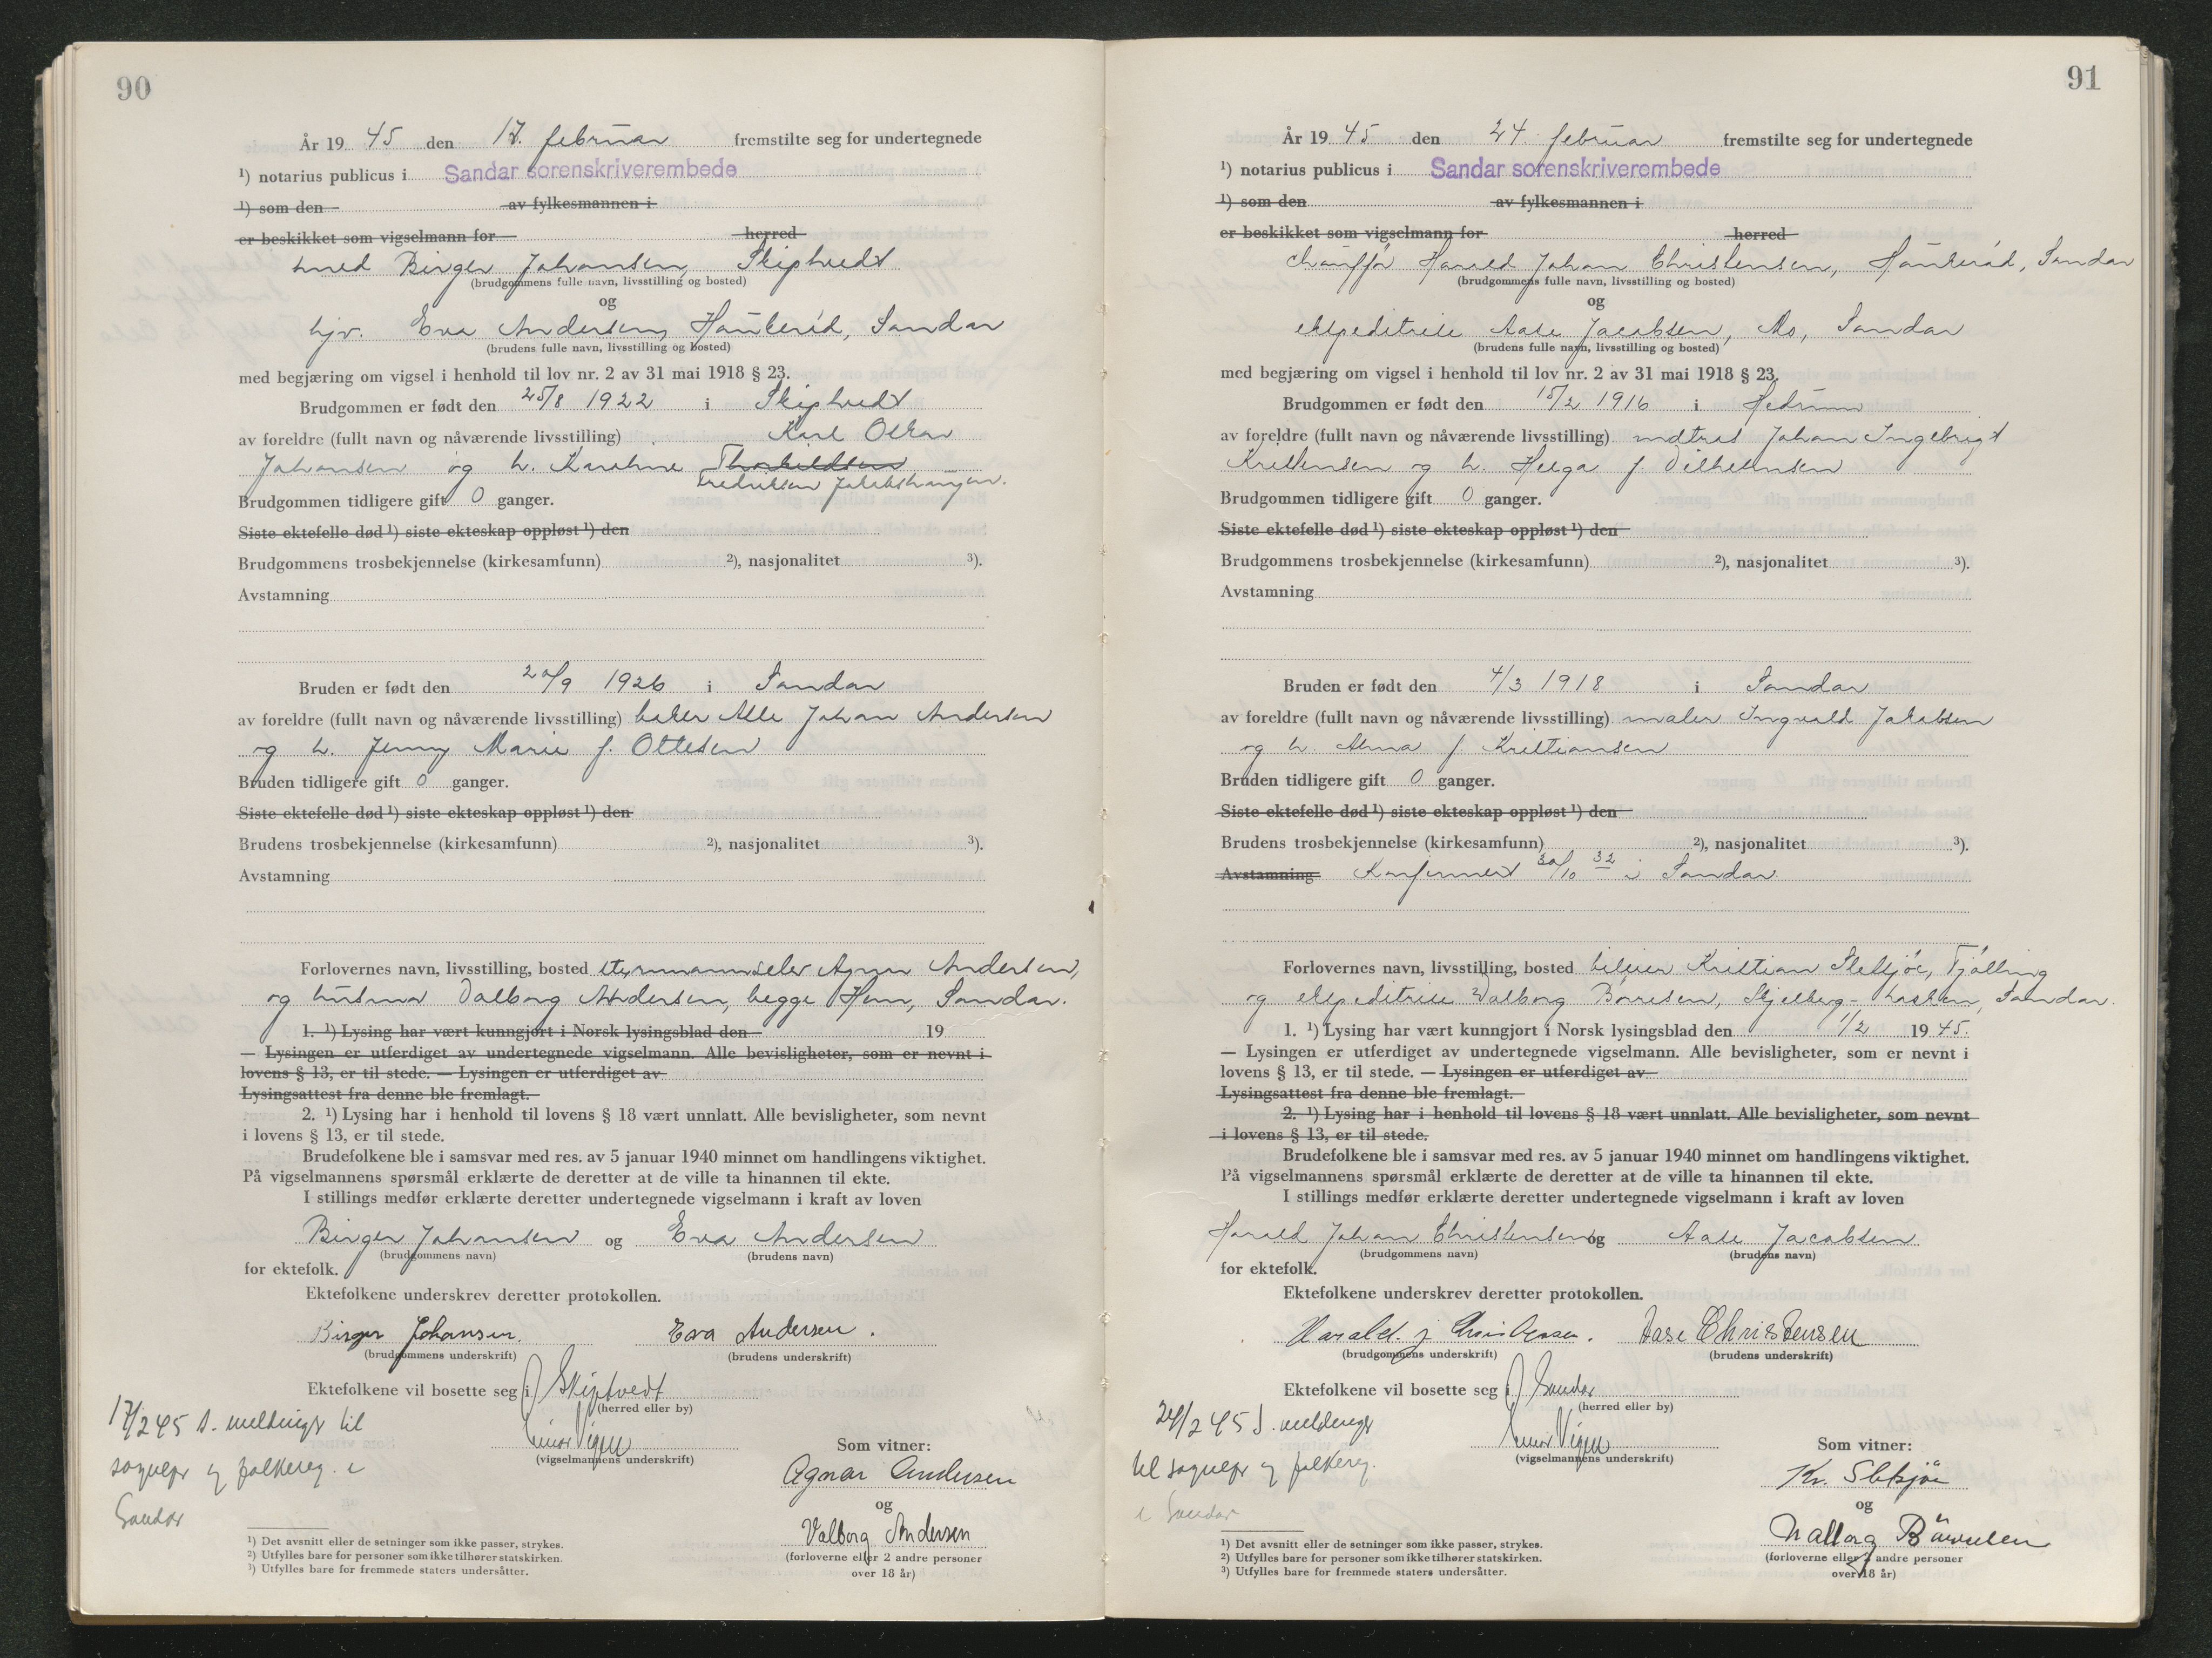 90
År 19 45 den 17. februar fremstilte seg for undertegnede
¹) notarius publicus i Sandar sorenskriverembede
¹) som den av fylkesmannen i
er beskikket som vigselmann for herred
Birger Johansen, Skiptvedt
(brudgommens fulle navn, livsstilling og bosted)
og
hjv. Eva Andersen, Haukerød, Sandar
(brudens fulle navn, livsstilling og bosted)
med begjæring om vigsel i henhold til lov nr. 2 av 31 mai 1918 § 23.
Brudgommen er født den 25/8 1922 i Skiptvedt
av foreldre (fullt navn og nåværende livsstilling) Karl Oskar
Johansen og h. Karoline
Brudgommen tidligere gift 0 ganger.
Siste ektefelle død ¹) siste ekteskap oppløst ¹) den
Brudgommens trosbekjennelse (kirkesamfunn) ²), nasjonalitet ³).
Avstamning
Bruden er født den 20/9 1926 i Sandar
av foreldre (fullt navn og nåværende livsstilling) baker Alle Johan Andersen
og h. Jenny Marie f. Ottesen
Bruden tidligere gift 0 ganger.
Siste ektefelle død ¹) siste ekteskap oppløst ¹) den
Brudens trosbekjennelse (kirkesamfunn) ²), nasjonalitet ³).
Avstamning
Forlovernes navn, livsstilling, bosted styrmannselev Agnar Andersen,
og hustru Valborg Andersen, begge Hem, Sandar.
1. ¹) Lysing har vært kunngjort i Norsk lysingsblad den 19
— Lysingen er utferdiget av undertegnede vigselmann. Alle bevisligheter, som er nevnt i
lovens § 13, er til stede. — Lysingen er utferdiget av
Lysingsattest fra denne ble fremlagt.
2. ¹) Lysing har i henhold til lovens § 18 vært unnlatt. Alle bevisligheter, som nevnt
i lovens § 13, er til stede.
Brudefolkene ble i samsvar med res. av 5 januar 1940 minnet om handlingens viktighet.
På vigselmannens spørsmål erklærte de deretter at de ville ta hinannen til ekte.
I stillings medfør erklærte deretter undertegnede vigselmann i kraft av loven
Birger Johansen og Eva Andersen
(brudgommens navn) (brudens navn)
for ektefolk.
Ektefolkene underskrev deretter protokollen.
Birger Johansen. Eva Andersen.
(brudgommens underskrift) (brudens underskrift)
Ektefolkene vil bosette seg i Skiptvedt
(herred eller by)
17/2 45 s. meldinger til
Einar Vigen
(vigselmannens underskrift)
Som vitner:
sognepr og folkereg. i
Agnar Andersen
og
Sandar
Valborg Andersen
(forloverne eller 2 andre personer
over 18 år)
¹) Det avsnitt eller de setninger som ikke passer, strykes.
²) Utfylles bare for personer som ikke tilhører statskirken.
³) Utfylles bare for fremmede staters undersåtter.
91
År 19 45 den 24. februar fremstilte seg for undertegnede
¹) notarius publicus i Sandar sorenskriverembede
¹) som den av fylkesmannen i
er beskikket som vigselmann for herred
chauffør Harald Johan Christensen, Haukerød, Sandar
(brudgommens fulle navn, livsstilling og bosted)
og
ekspeditrise Aase Jacobsen, Mo, Sandar
(brudens fulle navn, livsstilling og bosted)
med begjæring om vigsel i henhold til lov nr. 2 av 31 mai 1918 § 23.
Brudgommen er født den 15/2 1916 i Hedrum
av foreldre (fullt navn og nåværende livsstilling) Johan Ingebrigt
Kristensen og h. Helga f. Vilhelmsen
Brudgommen tidligere gift 0 ganger.
Siste ektefelle død ¹) siste ekteskap oppløst ¹) den
Brudgommens trosbekjennelse (kirkesamfunn) ²), nasjonalitet ³).
Avstamning
Bruden er født den 4/3 1918 i Sandar
av foreldre (fullt navn og nåværende livsstilling) maler Ingvald Jakobsen
og h. Anna f. Kristiansen
Bruden tidligere gift 0 ganger.
Siste ektefelle død ¹) siste ekteskap oppløst ¹) den
Brudens trosbekjennelse (kirkesamfunn) ²), nasjonalitet ³).
Avstamning Konfirmert 30/10 32 i Sandar.
Forlovernes navn, livsstilling, bosted bileier Kristian Sletsjøe, Tjølling
og ekspeditrise Valborg Børresen, Skjelberg-, Sandar.
1. ¹) Lysing har vært kunngjort i Norsk lysingsblad den 1/2 19 45.
— Lysingen er utferdiget av undertegnede vigselmann. Alle bevisligheter, som er nevnt i
lovens § 13, er til stede. — Lysingen er utferdiget av
Lysingsattest fra denne ble fremlagt.
2. ¹) Lysing har i henhold til lovens § 18 vært unnlatt. Alle bevisligheter, som nevnt
i lovens § 13, er til stede.
Brudefolkene ble i samsvar med res. av 5 januar 1940 minnet om handlingens viktighet.
På vigselmannens spørsmål erklærte de deretter at de ville ta hinannen til ekte.
I stillings medfør erklærte deretter undertegnede vigselmann i kraft av loven
Harald Johan Christensen og Aase Jacobsen
(brudgommens navn) (brudens navn)
for ektefolk.
Ektefolkene underskrev deretter protokollen.
Harald. J Christensen. Aase Christensen
(brudgommens underskrift) (brudens underskrift)
Ektefolkene vil bosette seg i Sandar
(herred eller by)
24/2 45 s. meldinger
Einar Vigen
(vigselmannens underskrift)
Som vitner:
til sognepr og folkereg.
Kr. Sletsjøe
og
i Sandar
Valborg Börresen
(forloverne eller 2 andre personer
over 18 år)
¹) Det avsnitt eller de setninger som ikke passer, strykes.
2) Utfylles bare for personer som ikke tilhører statskirken.
³) Utfylles bare for fremmede staters undersåtter.